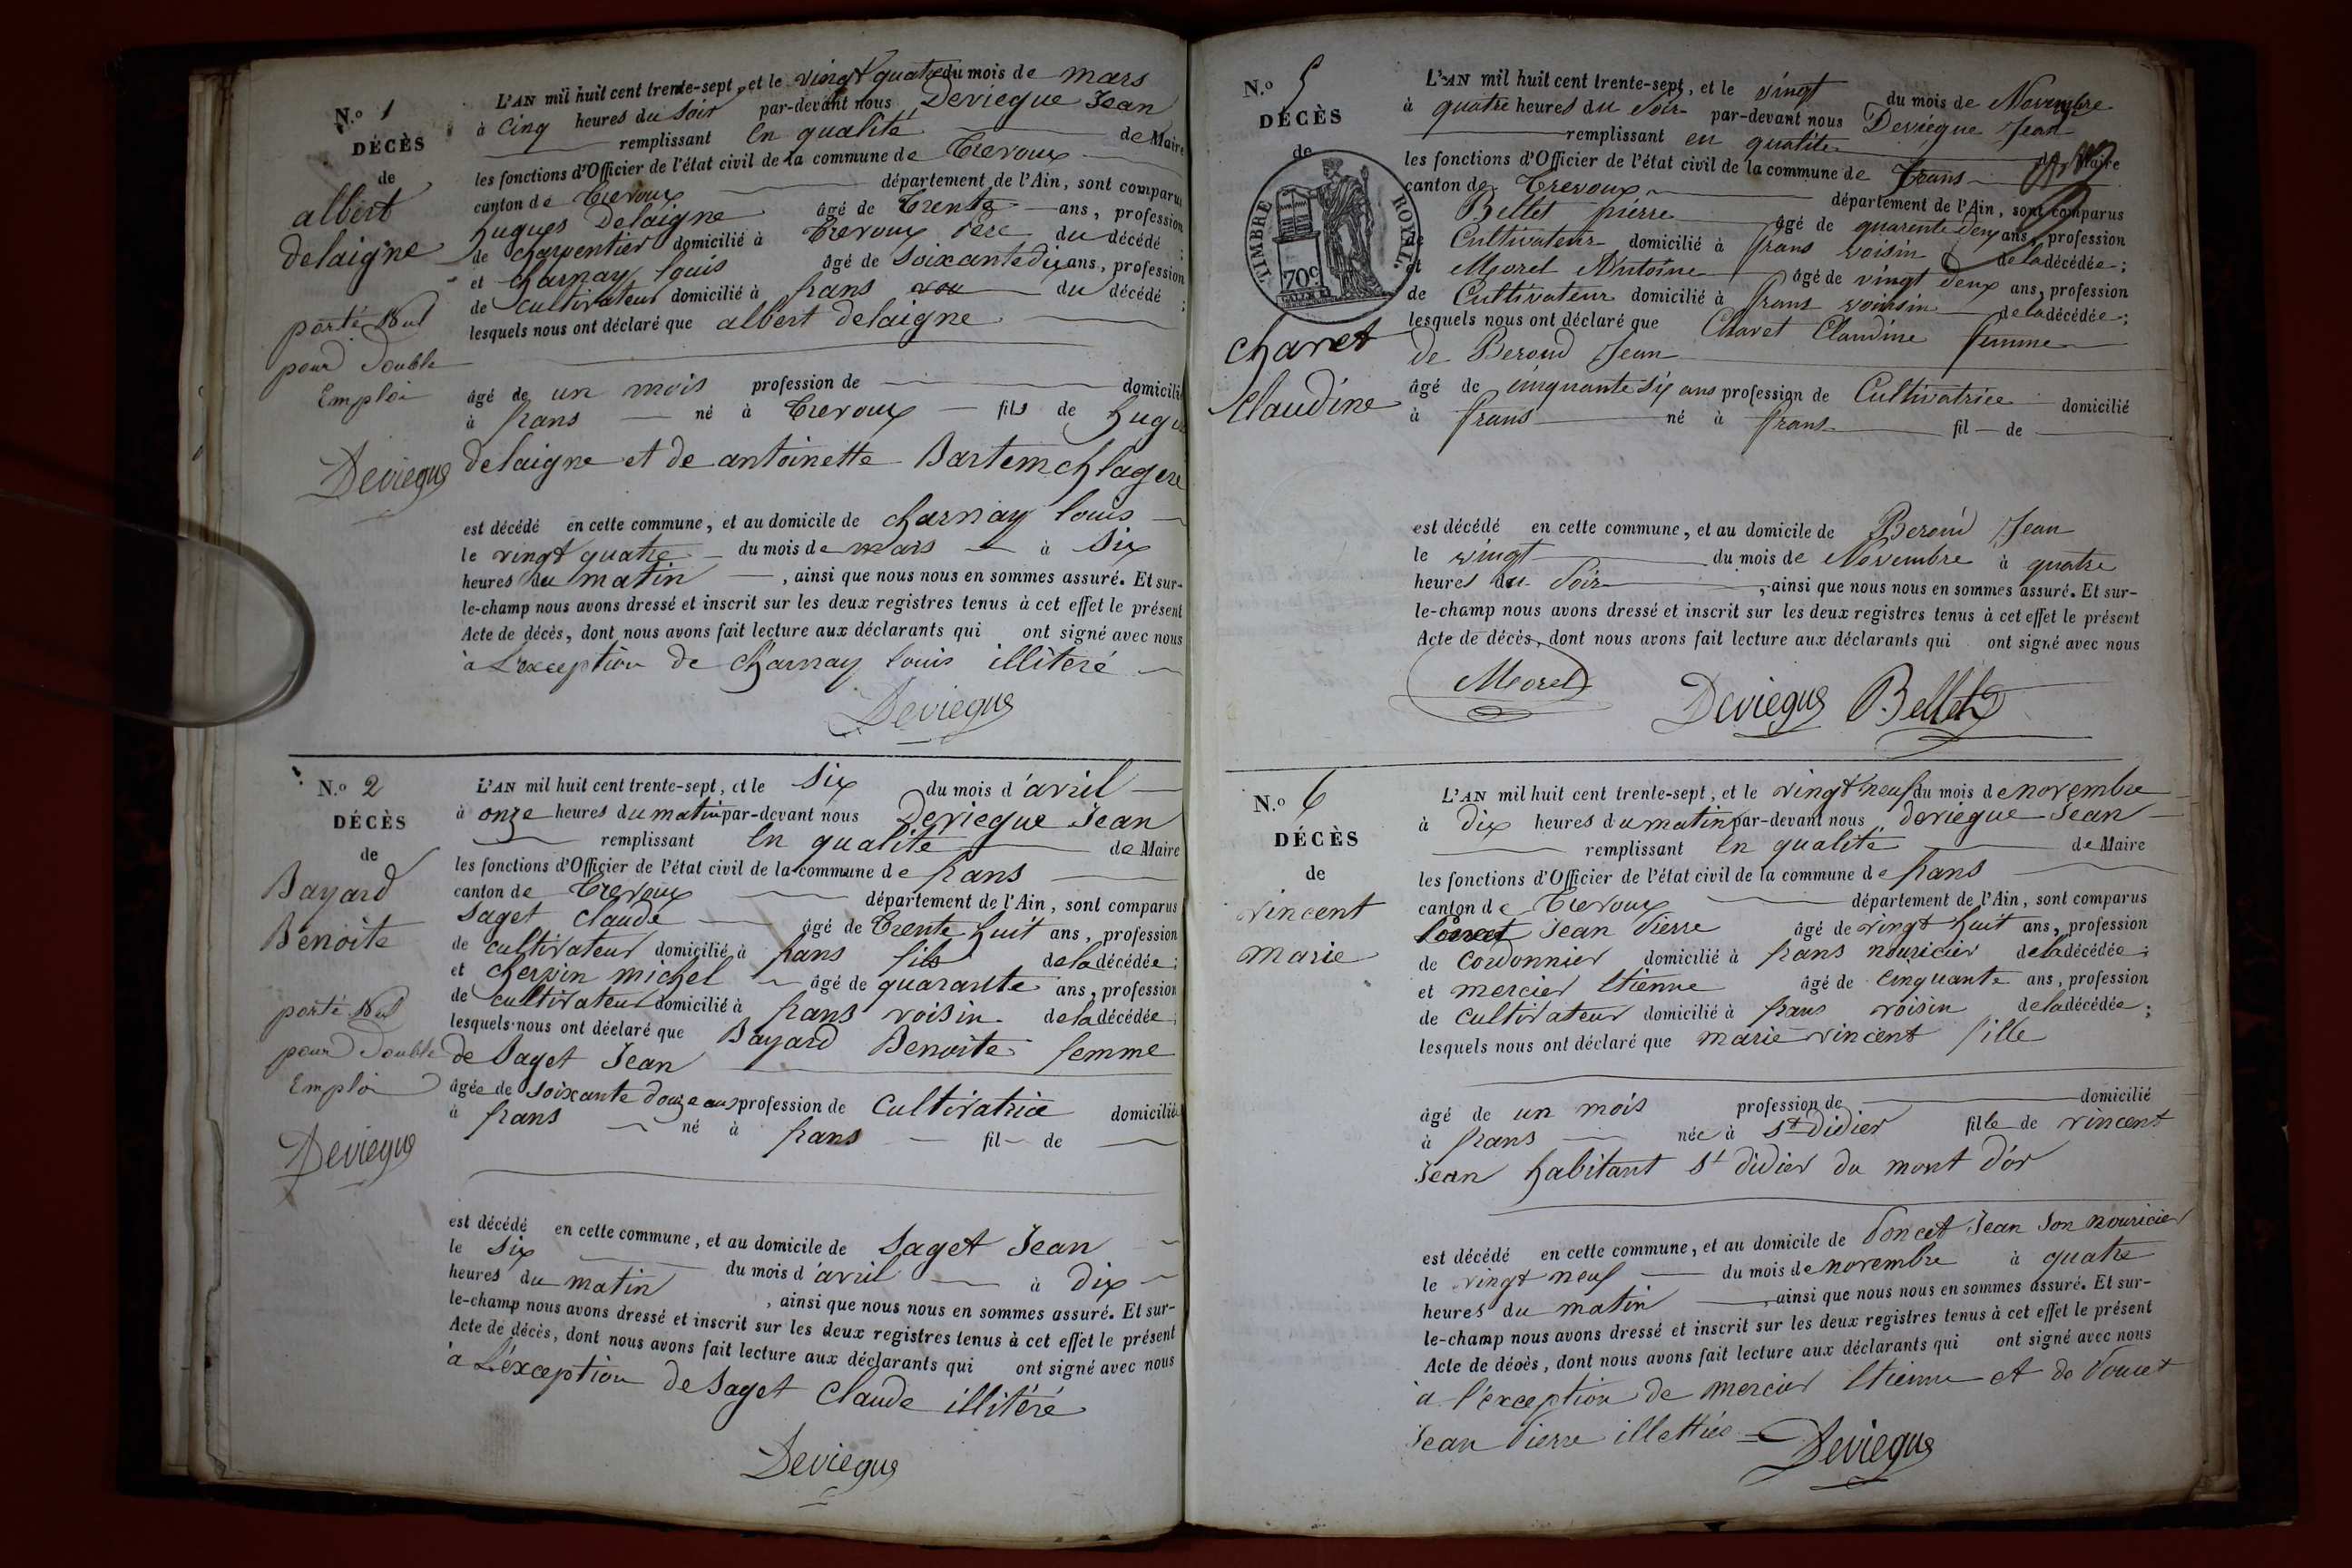 N.º 1
DÉCÈS
de
albert
delaigne
porté Nul
pour double
Emploi
Deviegue
L'AN mil huit cent trente-sept, et le vingt quatre du mois de mars
à cinq heures du soir par-devant nous Deviegue Jean
remplissant en qualité de Maire
les fonctions d'Officier de l'état civil de la commune de trevoux
canton de trevoux département de l'Ain, sont comparus
hugues Delaigne âgé de trente ans, profession
de charpentier domicilié à trevoux père du décédé ;
et charnay louis âgé de soixante dix ans, profession
de cultivateur domicilié à frans du décédé ;
lesquels nous ont déclaré que albert delaigne
âgé de un mois profession de domicilié
à frans né à trevoux fils de hugues
delaigne et de antoinette
est décédé en cette commune, et au domicile de charnay louis
le vingt quatre du mois de mars à six
heures du matin, ainsi que nous nous en sommes assuré. Et sur-
le-champ nous avons dressé et inscrit sur les deux registres tenus à cet effet le présent
Acte de décès, dont nous avons fait lecture aux déclarants qui ont signé avec nous
à L'exception de charnay louis illiteré
Deviegue
N.º 2
DÉCÈS
de
Bayard
Benoite
porté Nul
pour double
Emploi
Deviegue
L'AN mil huit cent trente-sept, et le six du mois d'avril
à onze heures du matin par-devant nous Deviegue Jean
remplissant en qualité de Maire
les fonctions d'Officier de l'état civil de la commune de frans
canton de trevoux département de l'Ain, sont comparus
saget claude âgé de trente huit ans, profession
de cultivateur domicilié à frans fils de la décédée ;
et chervin michel âgé de quarante ans, profession
de cultivateur domicilié à frans voisin de la décédée ;
lesquels nous ont déclaré que Bayard Benoite femme
de saget Jean
âgée de soixante douze ans profession de cultivatrice domiciliée
à frans né à frans fil de
est décédé en cette commune, et au domicile de saget Jean
le six du mois d'avril à dix
heures du matin, ainsi que nous nous en sommes assuré. Et sur-
le-champ nous avons dressé et inscrit sur les deux registres tenus à cet effet le présent
Acte de décès, dont nous avons fait lecture aux déclarants qui ont signé avec nous
à L'exception de saget claude illitéré
Deviegue
N.º 5
DÉCÈS
de
TIMBRE ROYAL
70c
charet
Claudine
L'AN mil huit cent trente-sept, et le vingt du mois de Novembre
à quatre heures du soir par-devant nous Deviégue Jean
remplissant en qualité de Maire
les fonctions d'Officier de l'état civil de la commune de frans
canton de trevoux département de l'Ain, sont comparus
Bellet pierre âgé de quarente deux ans, profession
de Cultivateur domicilié à frans voisin de la décédée ;
et Morel Antoine âgé de vingt deux ans, profession
de Cultivateur domicilié à frans voisin de la décédée ;
lesquels nous ont déclaré que Charet Claudine femme
de Beroud Jean
âgé de cinquante six ans profession de Cultivatrice domicilié
à frans né à frans fil de
est décédé en cette commune, et au domicile de Beroud Jean
le vingt du mois de Novembre à quatre
heures du soir, ainsi que nous nous en sommes assuré. Et sur-
le-champ nous avons dressé et inscrit sur les deux registres tenus à cet effet le présent
Acte de décès, dont nous avons fait lecture aux déclarants qui ont signé avec nous
Morel Deviegue Bellet
N.º 6
DÉCÈS
de
vincent
marie
L'AN mil huit cent trente-sept, et le vingt neuf du mois de novembre
à dix heures du matin par-devant nous deviegue Jean
remplissant en qualité de Maire
les fonctions d'Officier de l'état civil de la commune de frans
canton de trevoux département de l'Ain, sont comparus
Poncet Jean Pierre âgé de vingt huit ans, profession
de cordonnier domicilié à frans nouricier de la décédée ;
et mercier Etienne âgé de cinquante ans, profession
de cultivateur domicilié à frans voisin de la décédée ;
lesquels nous ont déclaré que marie vincent fille
âgé de un mois profession de domicilié
à frans née à st didier fille de vincent
Jean habitant st didier du mont d'or
est décédé en cette commune, et au domicile de Poncet Jean son nouricier
le vingt neuf du mois de novembre à quatre
heures du matin, ainsi que nous nous en sommes assuré. Et sur-
le-champ nous avons dressé et inscrit sur les deux registres tenus à cet effet le présent
Acte de décès, dont nous avons fait lecture aux déclarants qui ont signé avec nous
à l'exception de mercier Etienne et de Poncet
Jean Pierre
Deviegue